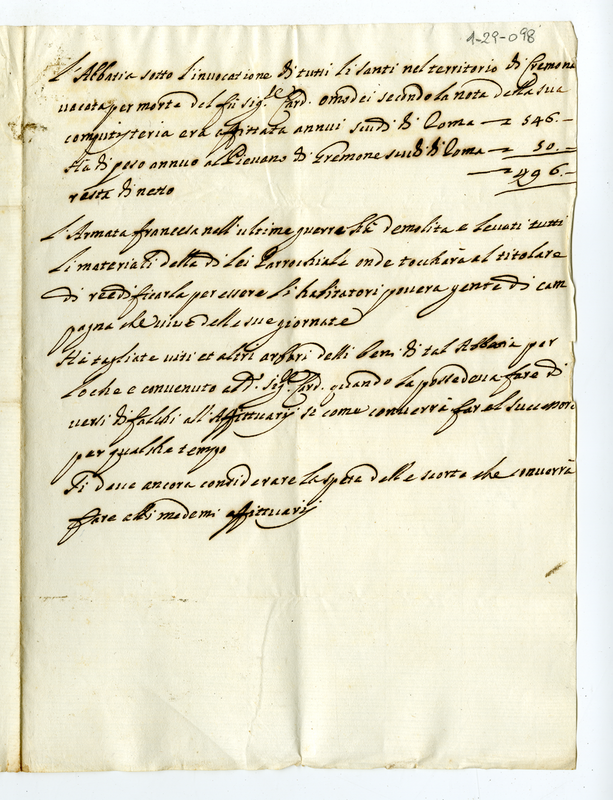 1-29-098
L'Abbatia sotto l'invocatione di tutti li santi nel territorio di Cremone
vacata per morte del fù sig.r Card. Omodei secondo la nota della sua
computisteria era affittata annui scudi di Roma — 546.—
Ha di peso annuo al Piovano di Cremone scudi di Roma — 50.—
resta di netto — 496.—
L'Armata francesa nell'ultime guerre hà demolita e levati tutti
li materiali della di lei Parrochiale onde toccharà al titolare
di reedificarla per essere li habitatori povera gente di cam
pagna che vive delle sue giornate
Ha tagliate viti et altri arbori delli beni di tal Abbatia per
loche e convenuto a d.o sig.r Card. quando la possedeva fare di
versi difalchi all'Affittuarij si come converrà far el successore
per qualche tempo
Si deve ancora considerare la spesa delle scorte che converrà
fare alli medemi affittuarij